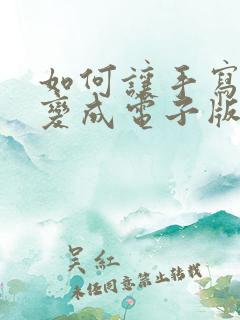 如何讓手寫
變成電子版
吴紅
未经同意禁止转载